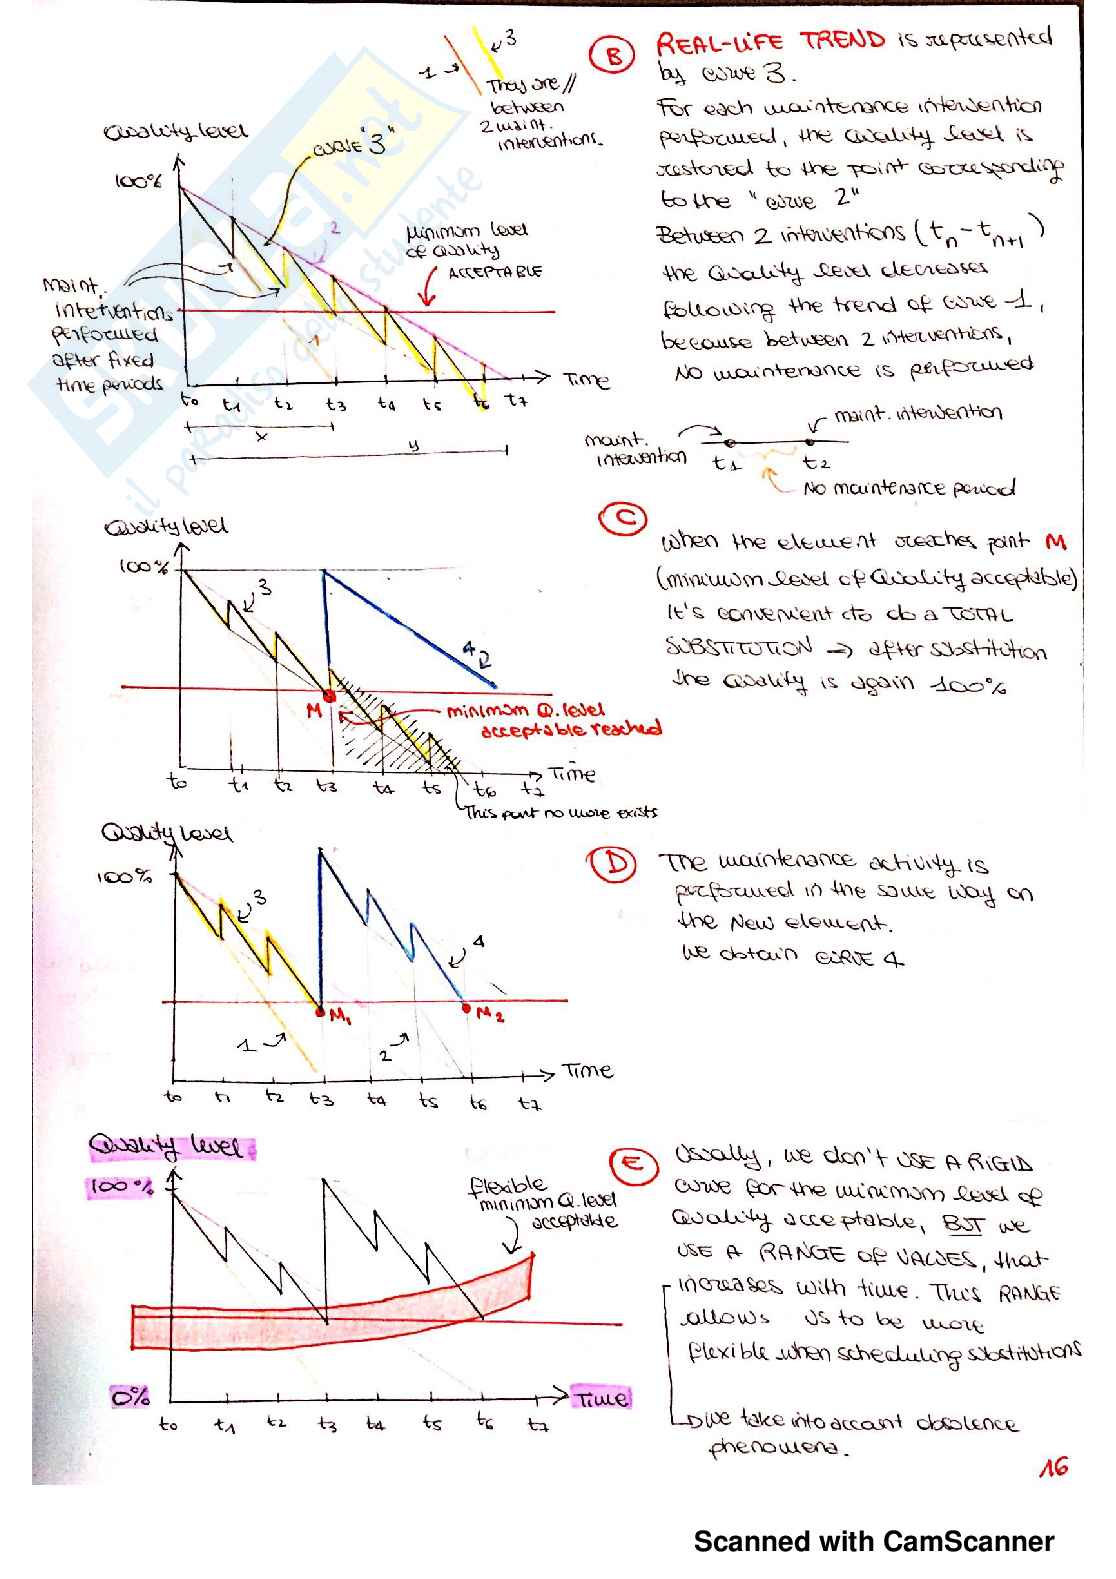 1 3
They are //
between
2 maint.
interventions.
Quality level
CURVE "3"
100%
2
Minimum level
of Quality
ACCEPTABLE
Maint.
interventions
performed
after fixed
time periods
1
Time
to t1 t2 t3 t4 t5 t6 t7
x
y
B REAL-LIFE TREND is represented
by curve 3.
For each maintenance intervention
performed, the Quality level is
restored to the point corresponding
to the "curve 2"
Between 2 interventions (tn - tn+1)
the Quality level decreases
following the trend of curve 1,
because between 2 interventions,
NO maintenance is performed
maint. intervention
maint.
intervention
t1 t2
No maintenance period
Quality level
100%
3
4
M
minimum Q. level
acceptable reached
Time
to t1 t2 t3 t4 t5 t6 t7
This part no more exists
C
When the element reaches point M
(minimum level of Quality acceptable)
It's convenient to do a TOTAL
SUBSTITUTION → after substitution
the Quality is again 100%
Quality level
100%
3
4
M1 M2
1 2
Time
to t1 t2 t3 t4 t5 t6 t7
D The maintenance activity is
performed in the same way on
the New element.
We obtain CURVE 4
Quality level
100%
flexible
minimum Q. level
acceptable
0% Time
to t1 t2 t3 t4 t5 t6 t7
E Usually, we don't USE A RIGID
curve for the minimum level of
Quality acceptable, BUT we
USE A RANGE OF VALUES, that
increases with time. This RANGE
allows us to be more
flexible when scheduling substitutions
we take into account obsolence
phenomena.
16
SKUOLA.net
il paradiso dello studente
Scanned with CamScanner